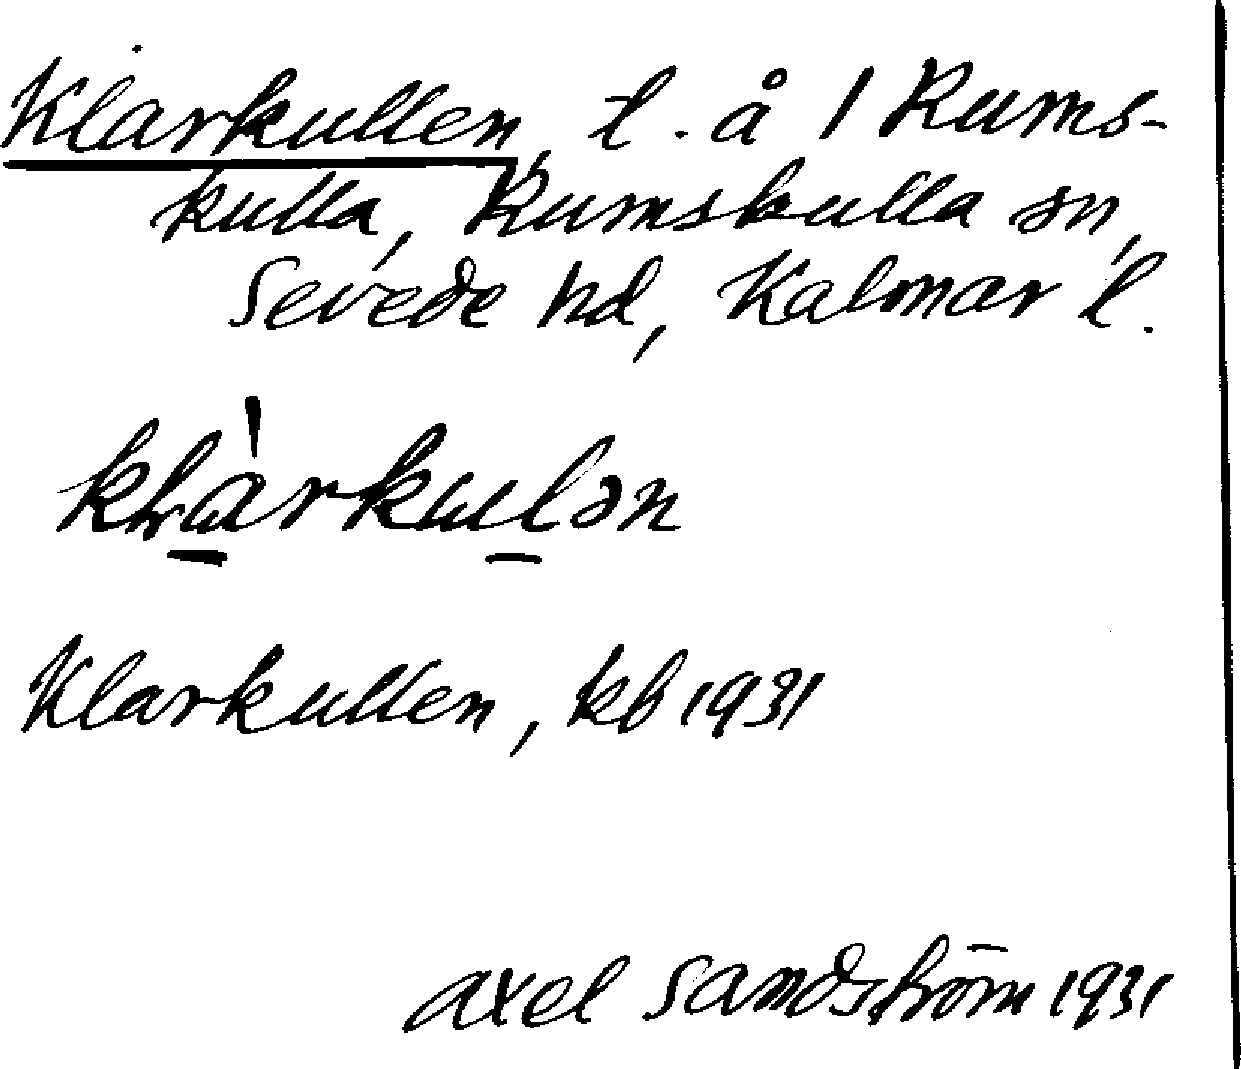 Klarkullen, t. å 1 Rums-
kulla, Rumskulla sn,
Sevede hd, Kalmar l.
kɬàrkuln̥
Klarkullen, kb 1931
Axel Sandström 1931